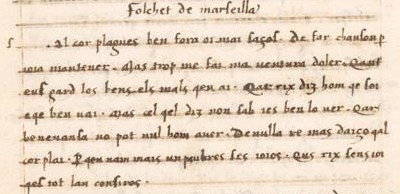 folchet de marseilla
. Al cor plagues ben fora oi mai sazos . De far chanson p
ioia mantener . Mas trop me fai ma uentura doler . Qant
eus gard los bens els mals qen ai . Qar rix diz hom qe soi
e qe ben uai . Mas cel qel diz non sab ies ben lo uer . Qar
benenansa no pot nul hom auer . De nulla re mas daiço qal
cor plai . P qen nam mais un paubres ses ioios . Qus rix sens ioi
qes tot lan consiros .